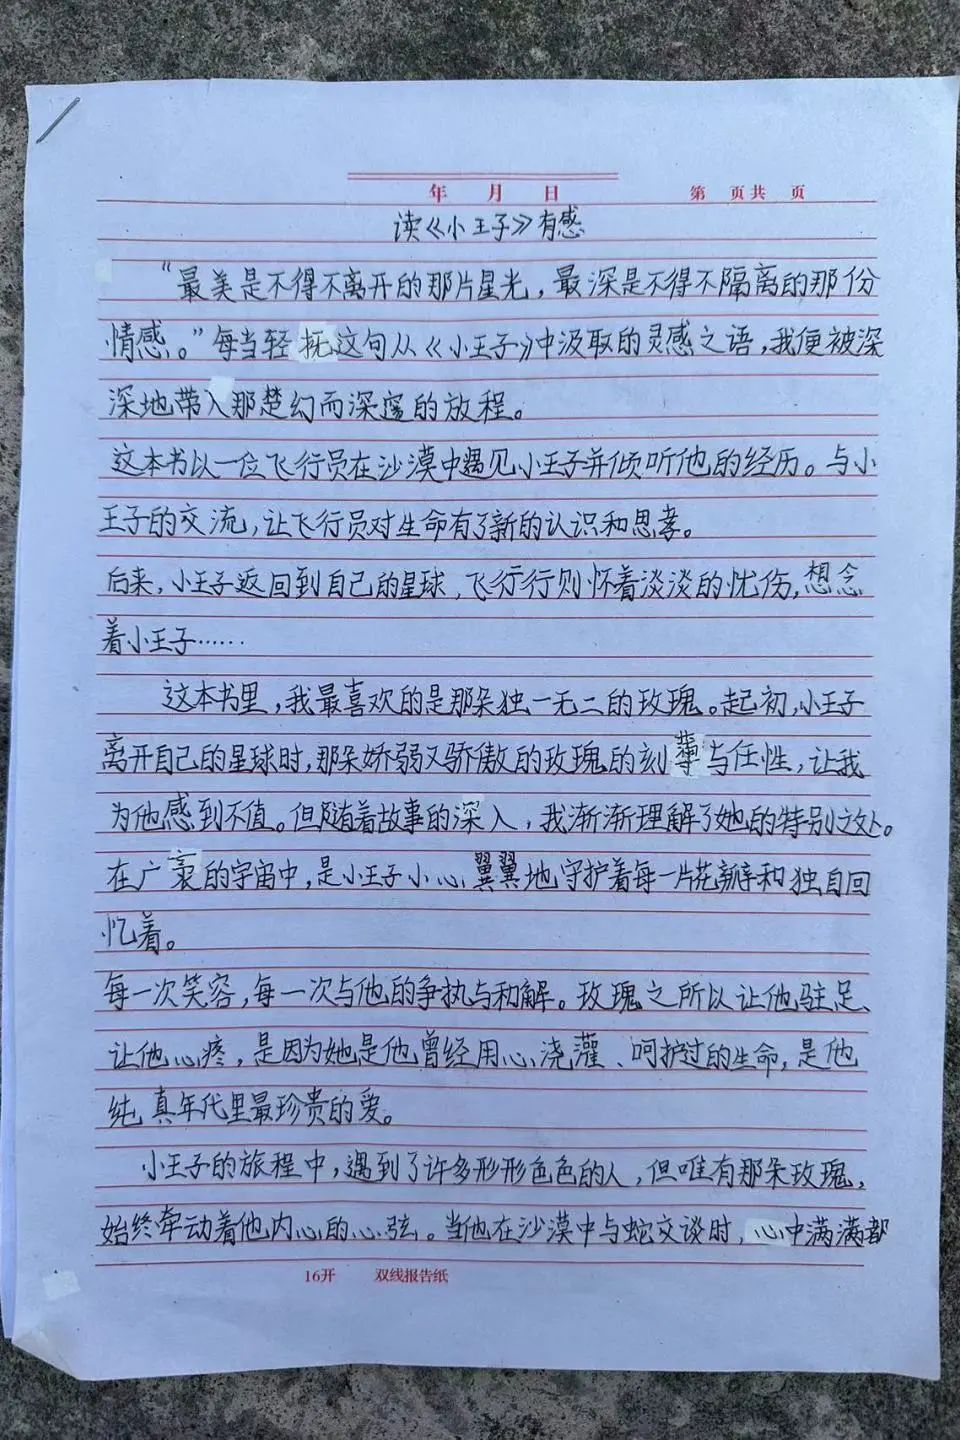 年 月 日 第 页共 页
读《小王子》有感
“最美是不得不离开的那片星光，最深是不得不隔离的那份
情感。”每当轻抚这句从《小王子》中汲取的灵感之语，我便被深
深地带入那楚幻而深邃的放程。
这本书以一位飞行员在沙漠中遇见小王子并倾听他的经历。与小
王子的交流，让飞行员对生命有了新的认识和思考。
后来，小王子返回到自己的星球，飞行行则怀着淡淡的忧伤，想念
着小王子……
这本书里，我最喜欢的是那朵独一无二的玫瑰。起初，小王子
离开自己的星球时，那朵娇弱又骄傲的玫瑰的刻薄与任性，让我
为他感到不值。但随着故事的深入，我渐渐理解了她的特别之处。
在广袤的宇宙中，是小王子小心翼翼地守护着每一片花瓣和独自回
忆着。
每一次笑容，每一次与他的争执与和解。玫瑰之所以让他驻足、
让他心疼，是因为她是他曾经用心浇灌、呵护过的生命，是他
纯真年代里最珍贵的爱。
小王子的旅程中，遇到了许多形形色色的人，但唯有那朵玫瑰，
始终牵动着他内心的心弦。当他在沙漠中与蛇交谈时，心中满满都
16开 双线报告纸